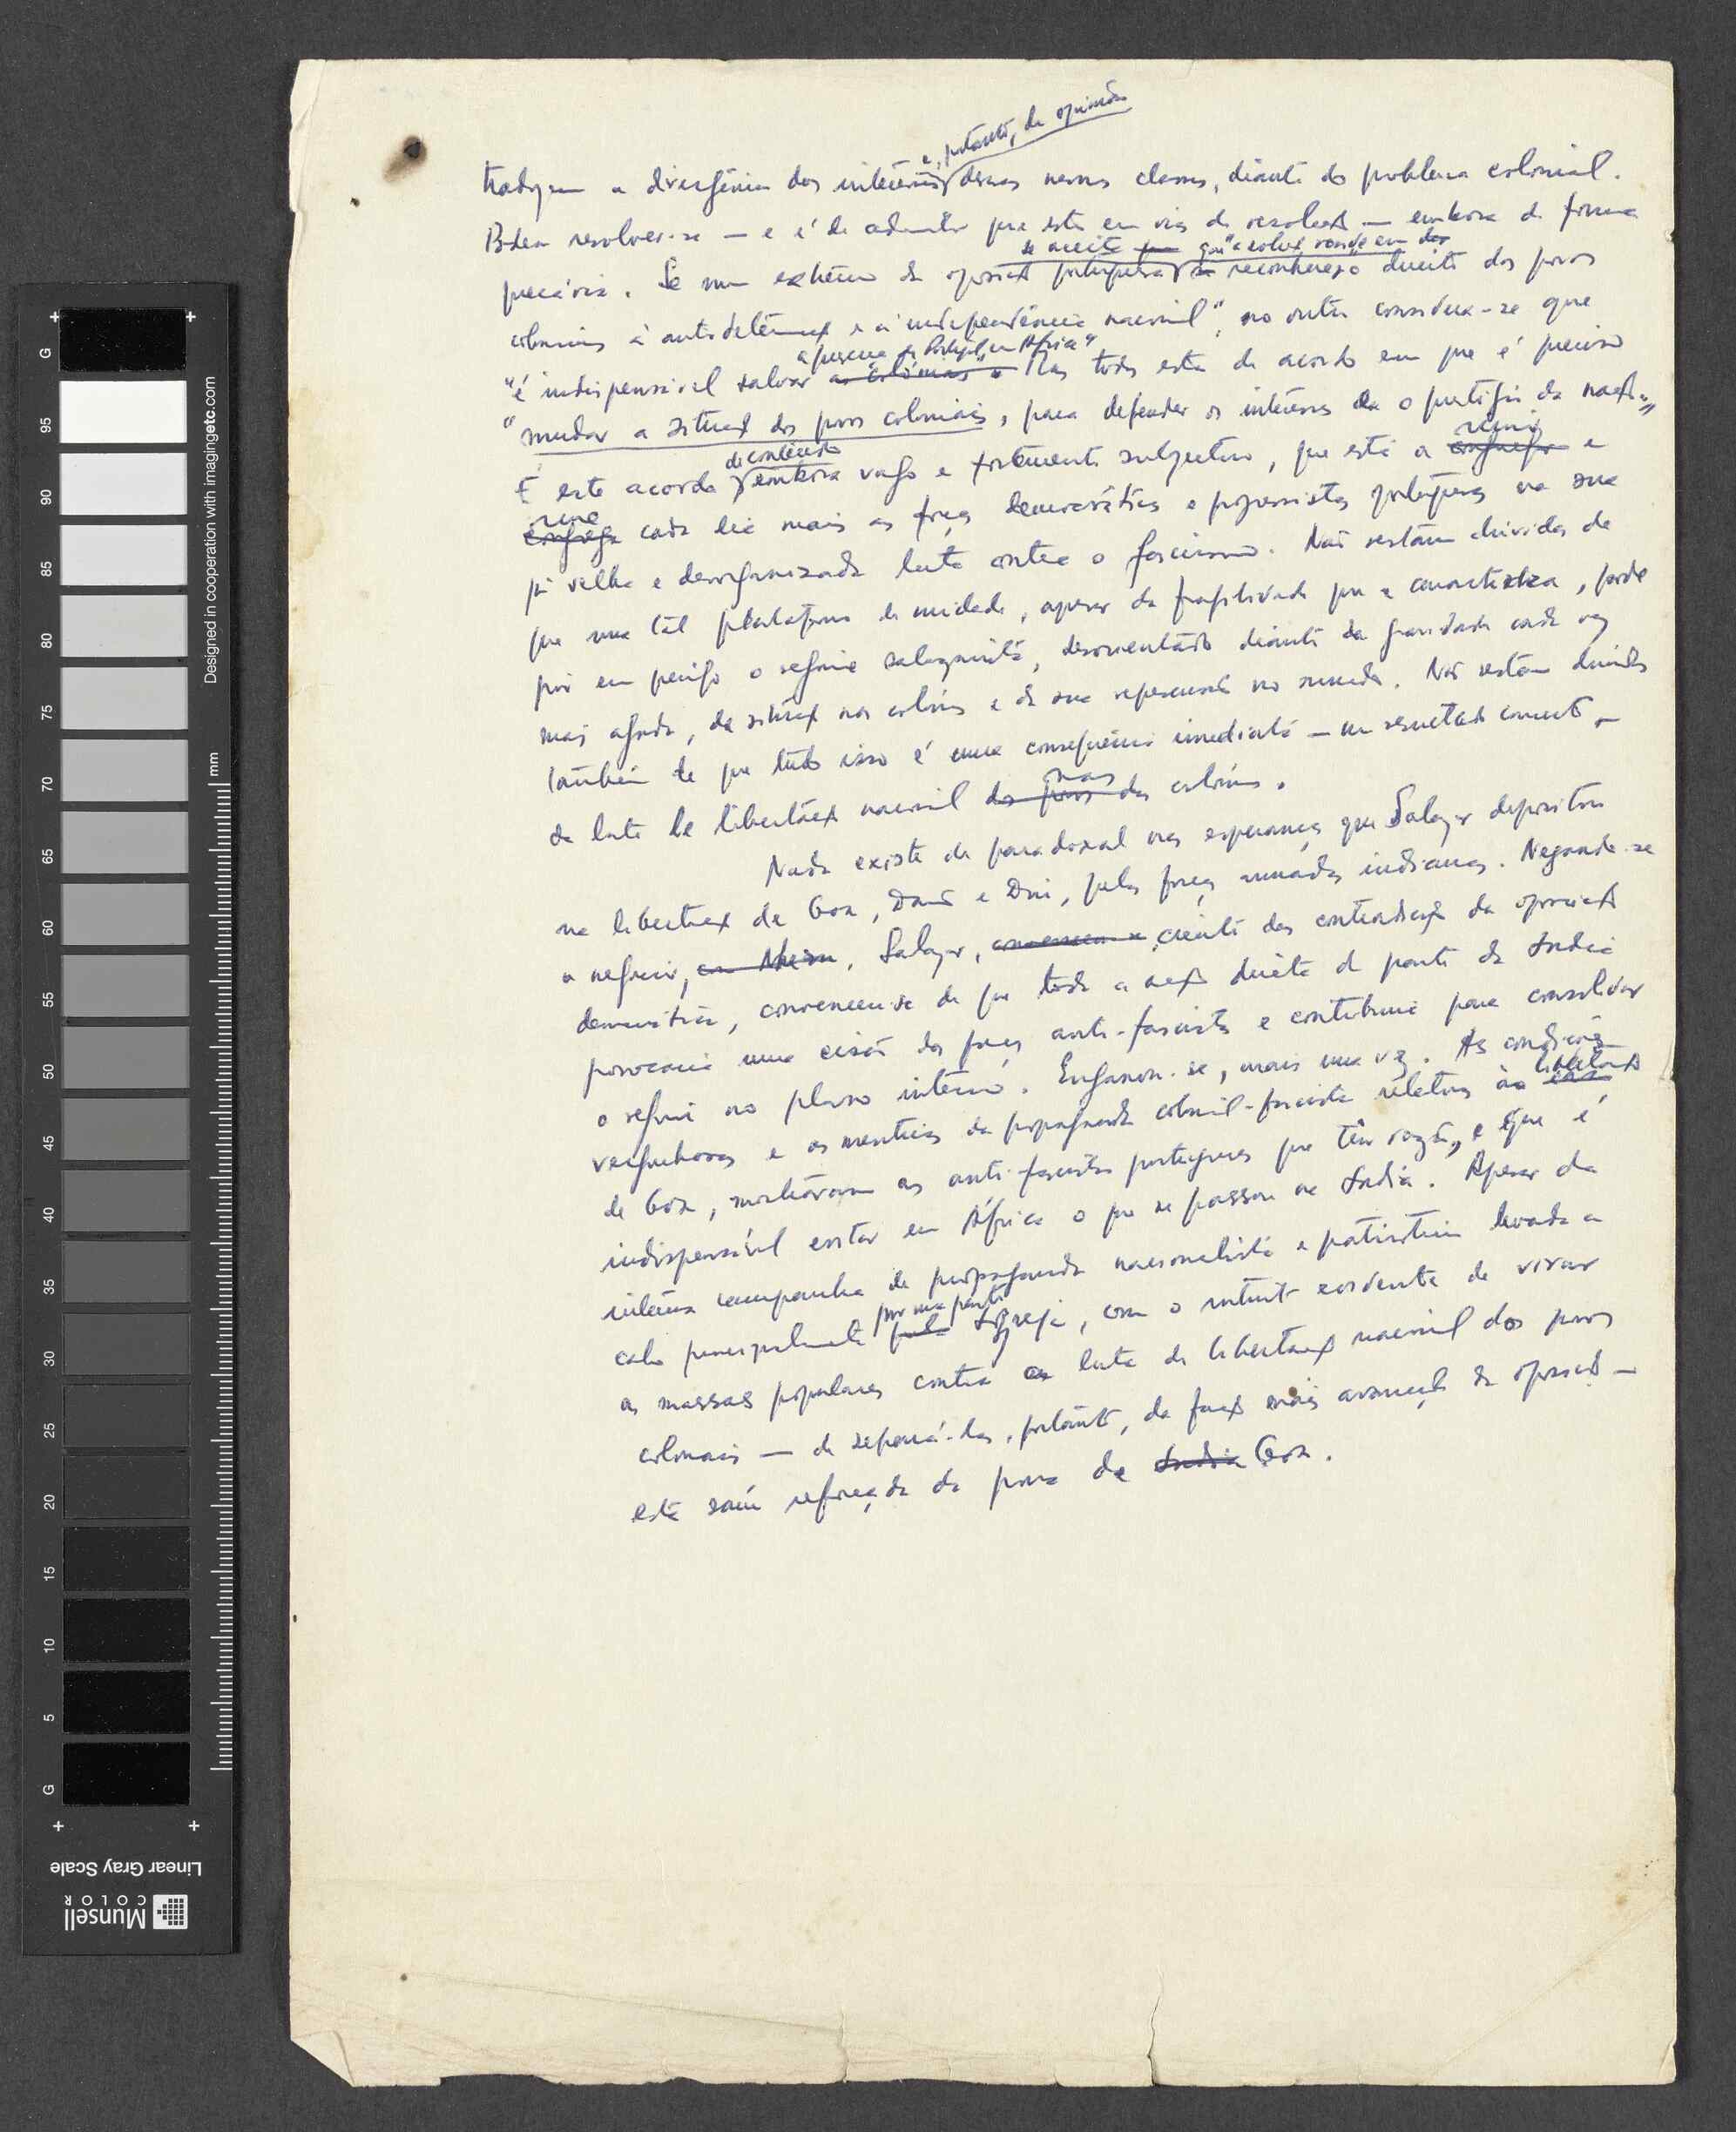 e, portanto, de opinião
traduzem a divergência dos interesses dessas mesmas classes, diante do problema colonial.
Podem resolver-se — e é de admitir que estão em vias de resolução — embora de forma
se aceite que "a solução reside em
precária. Se num extremo da oposição portuguesa reconhecer o direito dos povos
coloniais à autodeterminação e à independência nacional", no outro considera-se que
a presença de Portugal em África"
"é indispensável salvar as colónias". Mas todos estão de acordo em que é preciso
"mudar a situação dos povos coloniais, para defender os interesses e o prestígio da nação".
de conteúdo reuniu
É este acordo embora vago e fortemente subjectivo, que está a e
reune
cada dia mais as forças democráticas e progressistas portuguesas na sua
já velha e desorganizada luta contra o fascismo. Não restam dúvidas de
que uma tal plataforma de unidade, apesar da fragilidade que a caracteriza, pode
pôr em perigo o regime salazarista, desorientado diante da gravidade cada vez
mais aguda, da situação nas colónias e da sua repercussão no mundo. Não restam dúvidas
também de que tudo isso é uma consequência imediata — um resultado concreto —
nas
da luta de libertação nacional dos povos das colónias.
Nada existe de paradoxal nas esperanças que Salazar depositou
na libertação de Goa, Damão e Diu, pelas forças armadas indianas. Negando-se
a negociar, Salazar, ciente das contradições da oposição
democrática, convenceu-se de que toda a acção directa da parte da India
provocaria uma cisão das forças anti-fascistas e contribuiria para consolidar
o regime no plano interno. Enganou-se, mais uma vez. As condições
libertação
vergonhosas e as mentiras da propaganda colonial-fascista relativas à
de Goa, mostraram aos anti-fascistas portugueses que têm razão, e que é
indispensável evitar em África o que se passou na India. Apesar da
intensa campanha de propaganda nacionalista e patriótica levada a
por uma parte da
cabo principalmente pela Igreja, com o intuito evidente de virar
as massas populares contra a luta de libertação nacional dos povos
coloniais — de separá-las, portanto, da facção mais avançada da oposição —
esta saíu reforçada da prova de India Goa.
Designed in cooperation with imagingetc.com
mm
G
95
90
85
80
75
70
65
60
55
50
45
40
35
30
25
20
15
10
5
G
Linear Gray Scale
Munsell
COLOR